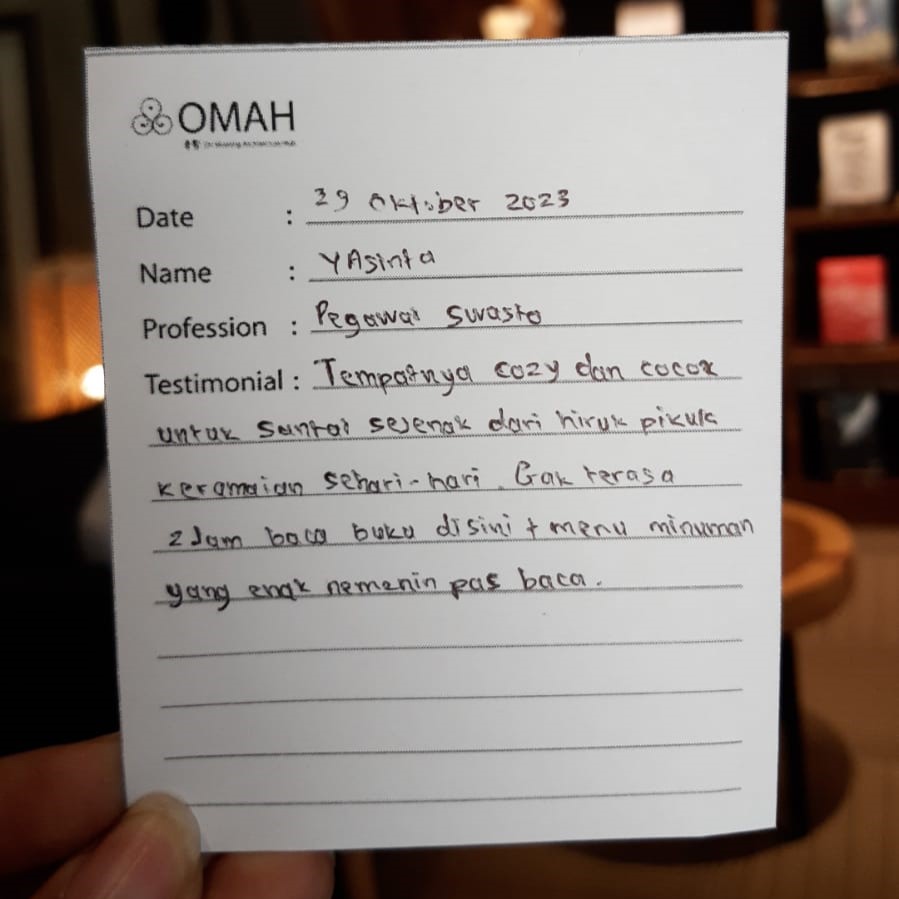 OMAH
Date : 29 Oktober 2023
Name : YAsinta
Profession : Pegawai Swasta
Testimonial : Tempatnya cozy dan cocok
untuk santai sejenak dari hiruk pikuk
keramaian sehari-hari. Gak terasa
2 Jam baca buku disini + menu minuman
yang enak nemenin pas baca.